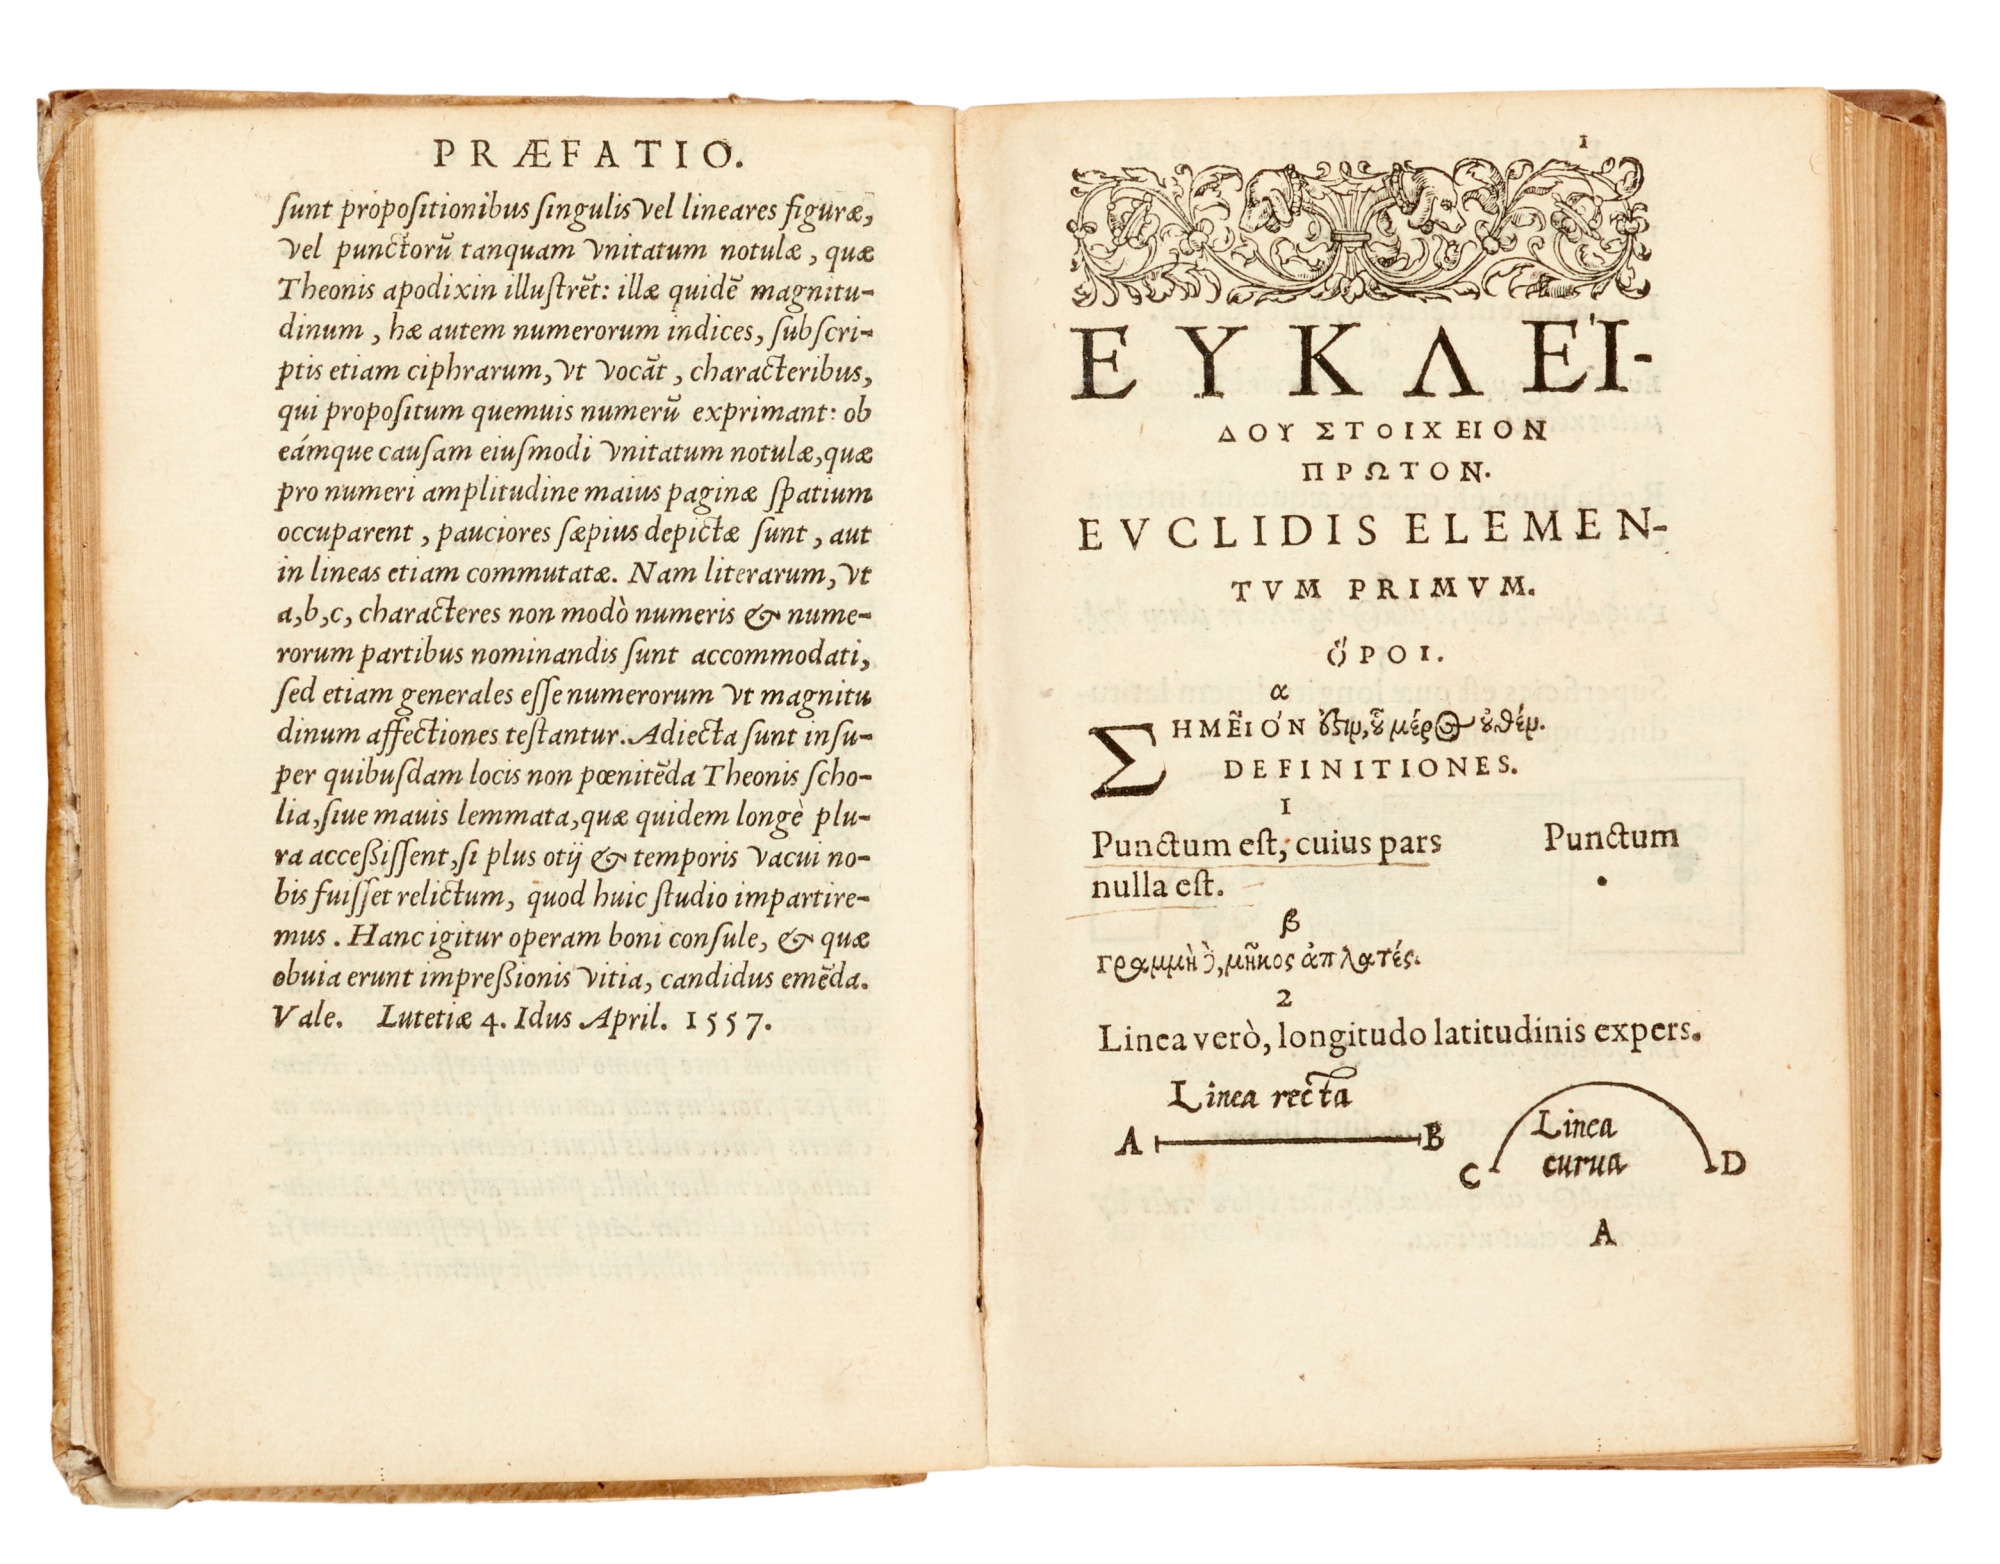 PRÆFATIO.
ſunt propoſitionibus ſingulis vel lineares figuræ,
vel punctorũ tanquam vnitatum notulæ, quæ
Theonis apodixin illuſtrẽt: illæ quidẽ magnitu-
dinum, hæ autem numerorum indices, ſubſcri-
ptis etiam ciphrarum, vt vocãt, characteribus,
qui propoſitum quemuis numerũ exprimant: ob
eámque cauſam eiuſmodi vnitatum notulæ, quæ
pro numeri amplitudine maius paginæ ſpatium
occuparent, pauciores ſæpius depictæ ſunt, aut
in lineas etiam commutatæ. Nam literarum, vt
a,b,c, characteres non modò numeris & nume-
rorum partibus nominandis ſunt accommodati,
ſed etiam generales eſſe numerorum vt magnitu
dinum affectiones teſtantur. Adiecta ſunt inſu-
per quibuſdam locis non pœnitẽda Theonis ſcho-
lia, ſiue mauis lemmata, quæ quidem longè plu-
ra acceßiſſent, ſi plus otij & temporis vacui no-
bis fuiſſet relictum, quod huic ſtudio impartire-
mus. Hanc igitur operam boni conſule, & quæ
obuia erunt impreßionis vitia, candidus emẽda.
Vale. Lutetiæ 4. Idus April. 1557.
1
ΕΥΚΛΕΙ-
ΔΟΥ ΣΤΟΙΧΕΙΟΝ
ΠΡΩΤΟΝ.
EVCLIDIS ELEMEN-
TVM PRIMVM.
ὍΡΟΙ.
α
ΣΗΜΕῖΟΝ ὅβιν, οὗ μέρος οὐθέν.
DEFINITIONES.
1
Punctum eſt, cuius pars
nulla eſt.
Punctum
β
Γραμμὴ δὲ, μῆκος ἀπλατές.
2
Linea verò, longitudo latitudinis expers.
Linea recta
A B
Linea
curua
C D
A